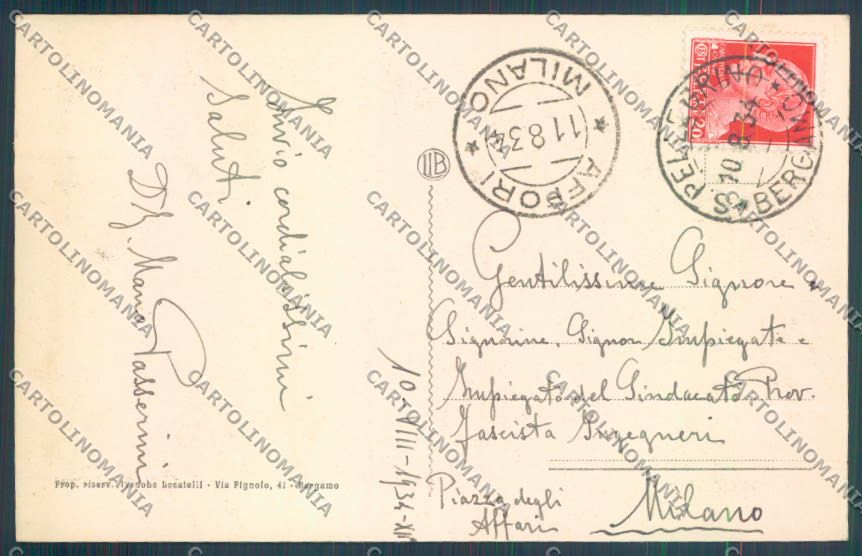 Invio cordialissimi
Saluti
Passerini
10-VIII-1934-XII
Prop. riserv. Locatelli - Via Pignolo, 41 - Bergamo
IIB
MILANO
* AFFORI *
11.8.34
S. PELLEGRINO *
10.8.34
BERGAMO
CENT. 20
Gentilissime Signore e
Signorine, Signori Impiegate e
Impiegato del Sindacato Prov.
Fascista Ingegneri
Piazza degli
Affari
Milano
CARTOLINOMANIA